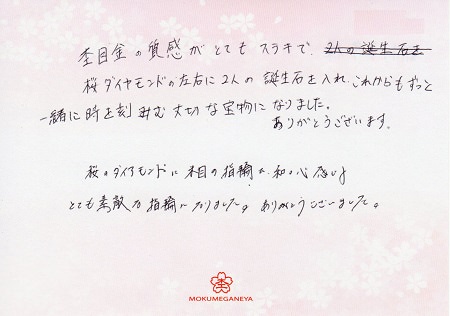 杢目金の質感がとてもステキで、2人の誕生石を
桜ダイヤモンドの左右に2人の誕生石を入れ、これからもずっと
一緒に時を刻み込む大切な宝物になりました。
ありがとうございます。
桜のダイヤモンドに木目の指輪が和の心感じ
とても素敵な指輪になりました。ありがとうございました。
MOKUMEGANEYA